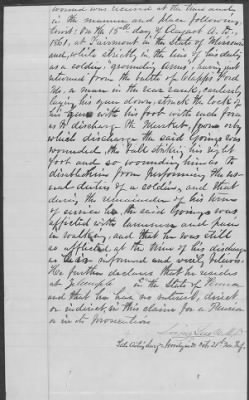 wound was received at the time and
in the manner and place following
towit: On the 15th day of August A.D.
1861, at Tuscumbia in the State of Missouri
and, while strictly in the line of his duty
as a soldier, "grounding arms," having just
returned from the battle of Clapps Ford
Mo, a man in the rear rank, carelessly
laying his gun down, struck the lock of
his gun with his foot with such force
as to discharge the Musket, from
which discharge the said Goings was
wounded, the ball striking his right
foot and so wounding him as to
disable him from performing the
usual duties of a soldier, and that
during the remainder of his term
of service he, the said Goings was
affected with lameness and pain
in walking, and that he was still
so affected at the time of his discharge
as he is informed and verily believes.
He further declares that he resides
at in the State of Kansas
and that he has no interest, direct
or indirect, in this claim for a Pension
or in its prosecution